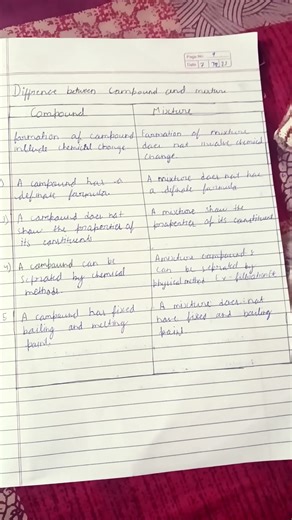 Page No: 9
Date: 2
Diffrence between Compound and mixture
Compound
Mixture
formation of compound
include chemical change
Formation of mixture
does not involve chemical
change.
A compound has a
definate formula
A mixture does not have
a definate formula
3) A compound does not
show the properties of
its constituents
A mixture show the
properties of its constituent
4) A compound can be
seprated by chemical
methods.
A mixture
can be seprated by
physical method Ex-filtration
5 A compound has fixed
boiling and melting
point.
A mixture does not
have fixed and boiling
point.